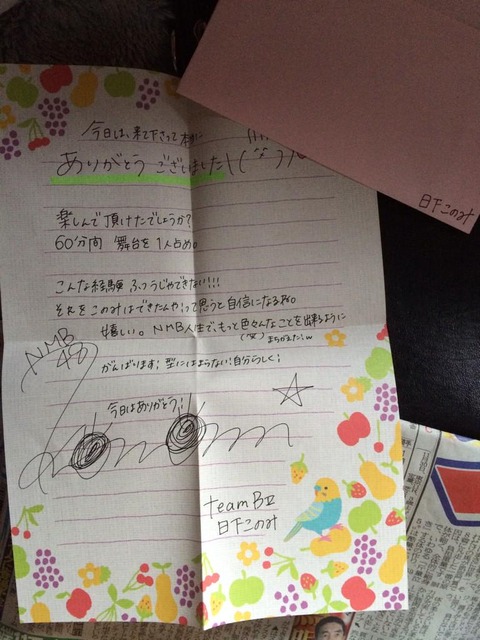 今日は、来て下さって本当に
ありがとうございました\(^^)/
楽しんで頂けたでしょうか?
60分間 舞台を1人占め。
こんな経験ふつうじゃできない!!!
それをこのみはできたんや。って思うと自信になるね。
嬉しい。NMB人生で、もっと色々んなことを出来るように
まちがえた!w
がんばります! 型にはまらない! 自分らしく!
NMB
48
今日はありがとう!!
Konomin
teamBⅡ
日下このみ
日下このみ